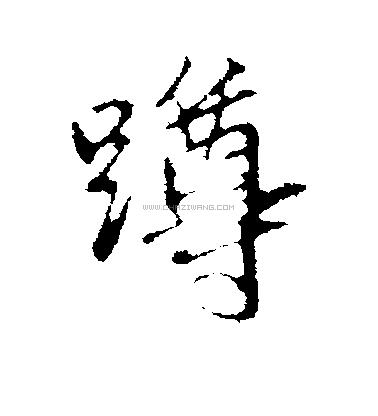 蹲
WWW.CHAZIWANG.COM